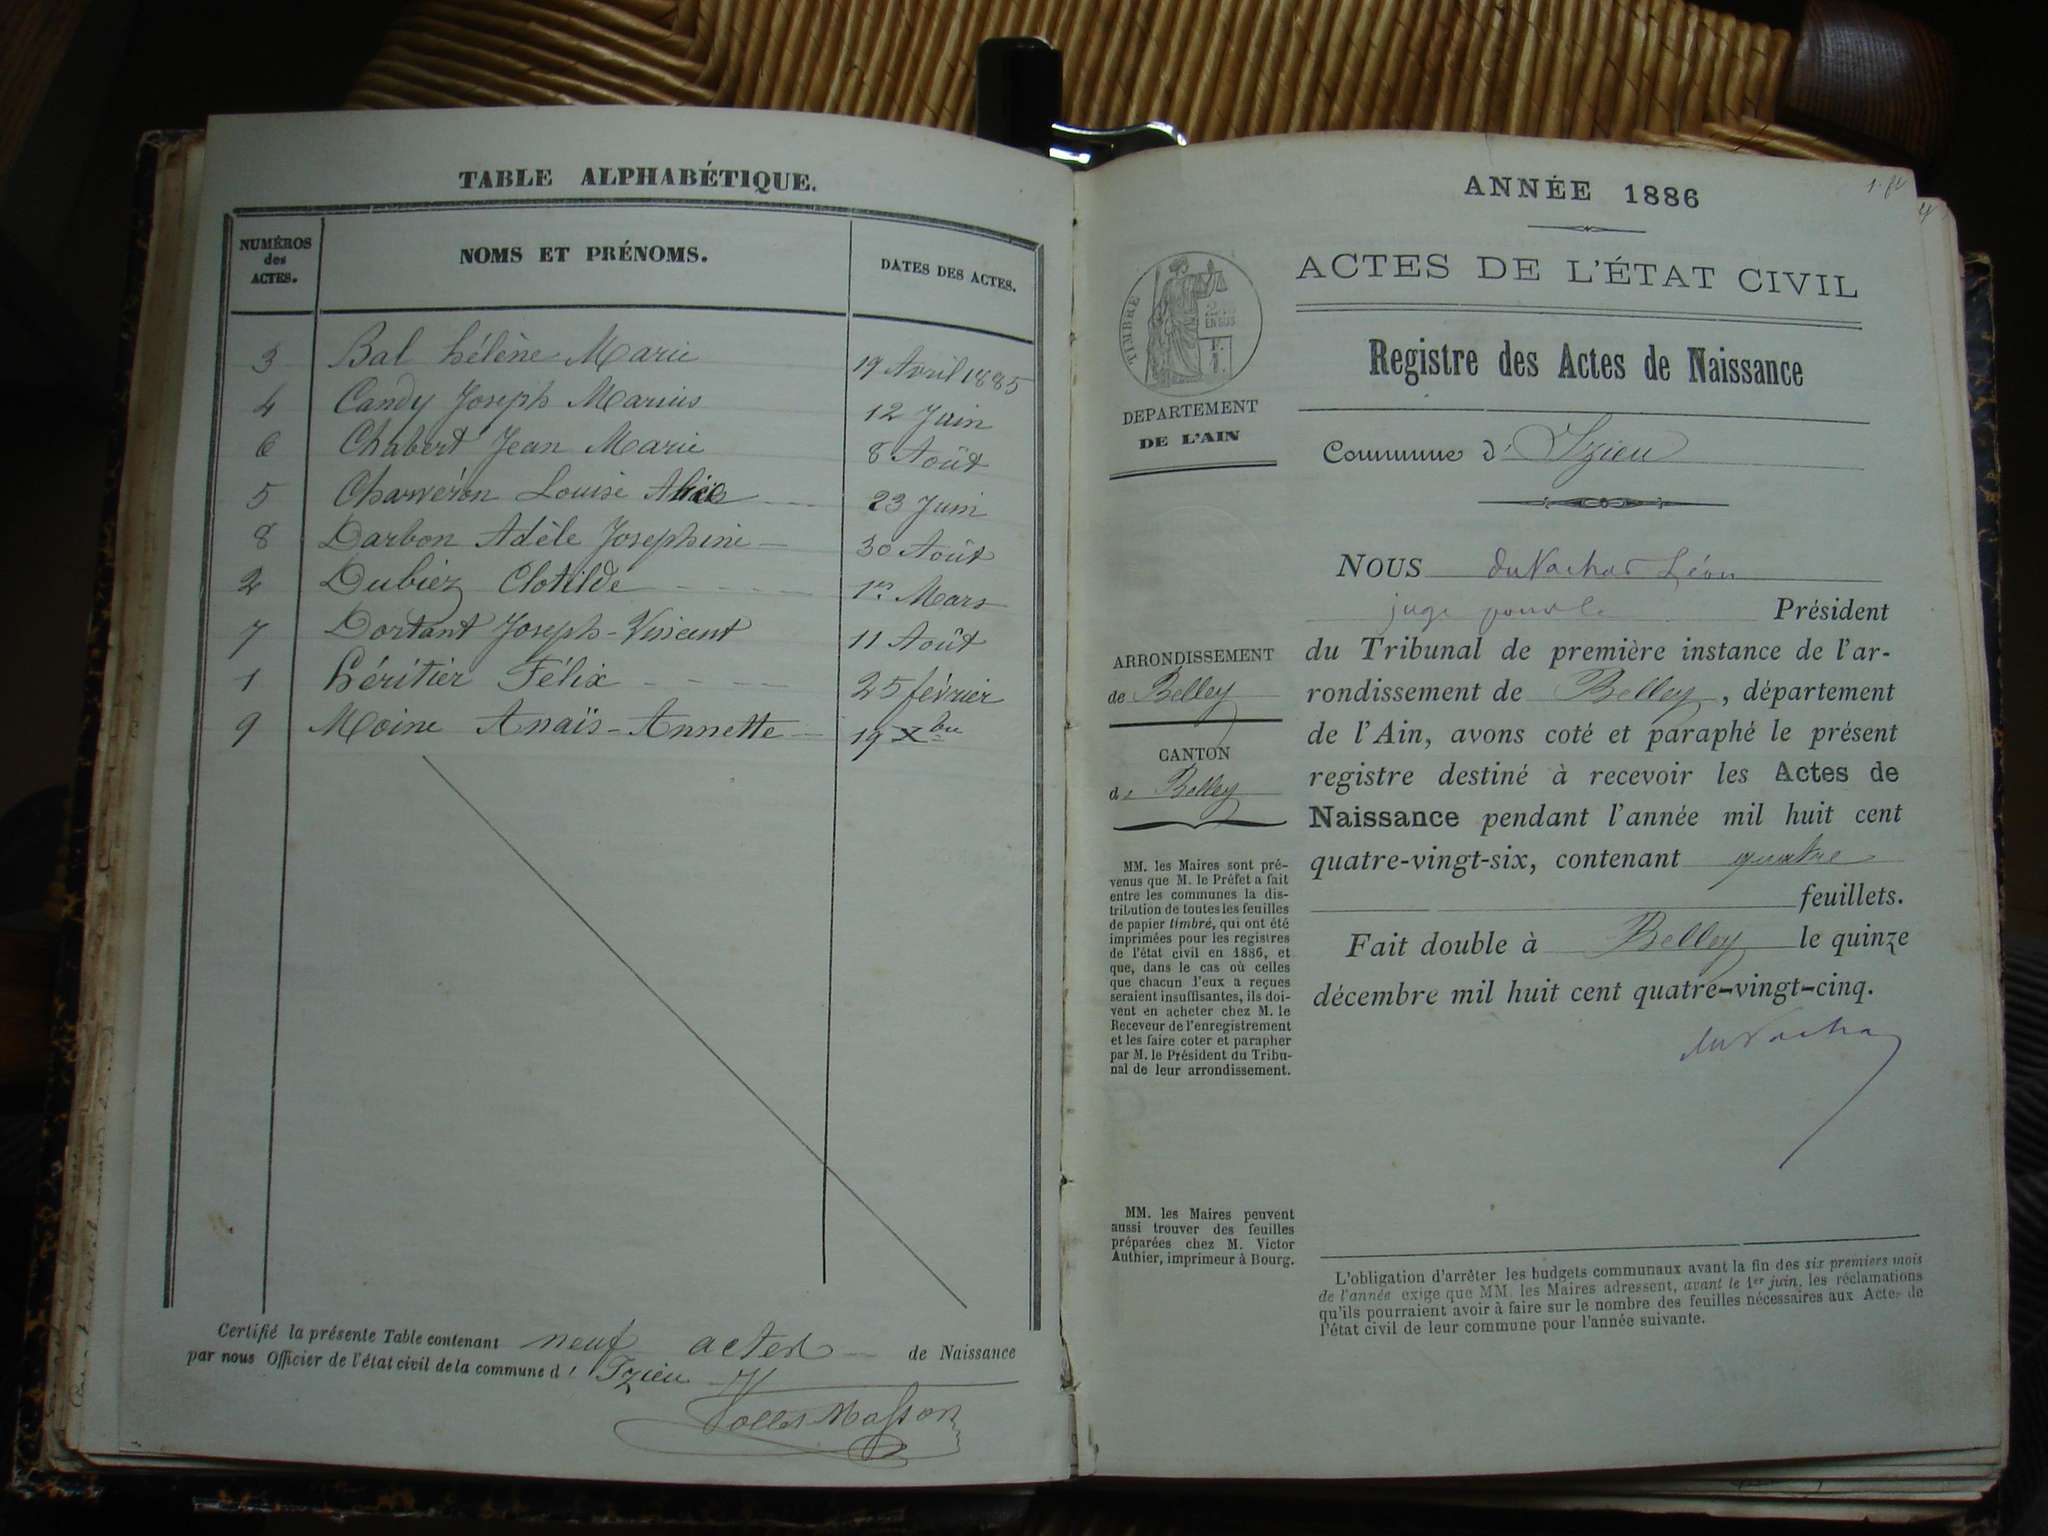 TABLE ALPHABÉTIQUE.
NUMÉROS
des
ACTES.
NOMS ET PRÉNOMS.
DATES DES ACTES.
3 Bal hélène Marie 19 Avril 1885
4 Candy Joseph Marius 12 Juin
6 Chabert Jean Marie 8 Août
5 Charvéron Louise 23 Juin
8 Darbon Adèle Josephine 30 Août
2 Dubiez Clotilde 1er Mars
7 Dortant Joseph-Vincent 11 Août
1 héritier Félix 25 février
9 Moine Anaïs-Annette 19 Xbre
Certifié la présente Table contenant neuf actes de Naissance
par nous Officier de l'état civil de la commune d' Izieu
ANNÉE 1886
TIMBRE
ACTES DE L'ÉTAT CIVIL
Registre des Actes de Naissance
DEPARTEMENT
DE L'AIN
Commune d' Izieu
NOUS Léon
juge pour le Président
du Tribunal de première instance de l'ar-
rondissement de Belley, département
de l'Ain, avons coté et paraphé le présent
registre destiné à recevoir les Actes de
Naissance pendant l'année mil huit cent
quatre-vingt-six, contenant quatre
feuillets.
Fait double à Belley le quinze
décembre mil huit cent quatre-vingt-cinq.
ARRONDISSEMENT
de Belley
CANTON
de Belley
MM. les Maires sont pré-
venus que M. le Préfet a fait
entre les communes la dis-
tribution de toutes les feuilles
de papier timbré, qui ont été
imprimées pour les registres
de l'état civil en 1886, et
que, dans le cas où celles
que chacun d'eux a reçues
seraient insuffisantes, ils doi-
vent en acheter chez M. le
Receveur de l'enregistrement
et les faire coter et parapher
par M. le Président du Tribu-
nal de leur arrondissement.
MM. les Maires peuvent
aussi trouver des feuilles
préparées chez M. Victor
Authier, imprimeur à Bourg.
L'obligation d'arrêter les budgets communaux avant la fin des six premiers mois
de l'année exige que MM. les Maires adressent, avant le 1er juin, les réclamations
qu'ils pourraient avoir à faire sur le nombre des feuilles nécessaires aux Actes de
l'état civil de leur commune pour l'année suivante.